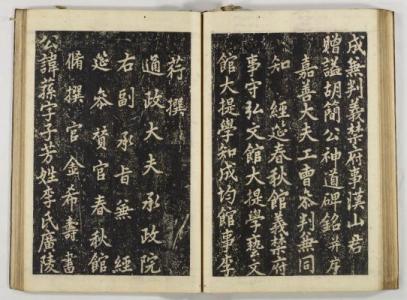 成兼判義禁府事漢山君
贈謚胡簡公神道碑銘并序
嘉善大夫工曹叅判兼同
知經筵春秋館義禁府
事守弘文館大提學藝文
館大提學知成均館事李
荇撰
通政大夫承政院
右副承旨兼經
筵叅贊官春秋館
脩撰官金希壽書
公諱蓀字子芳姓李氏廣陵